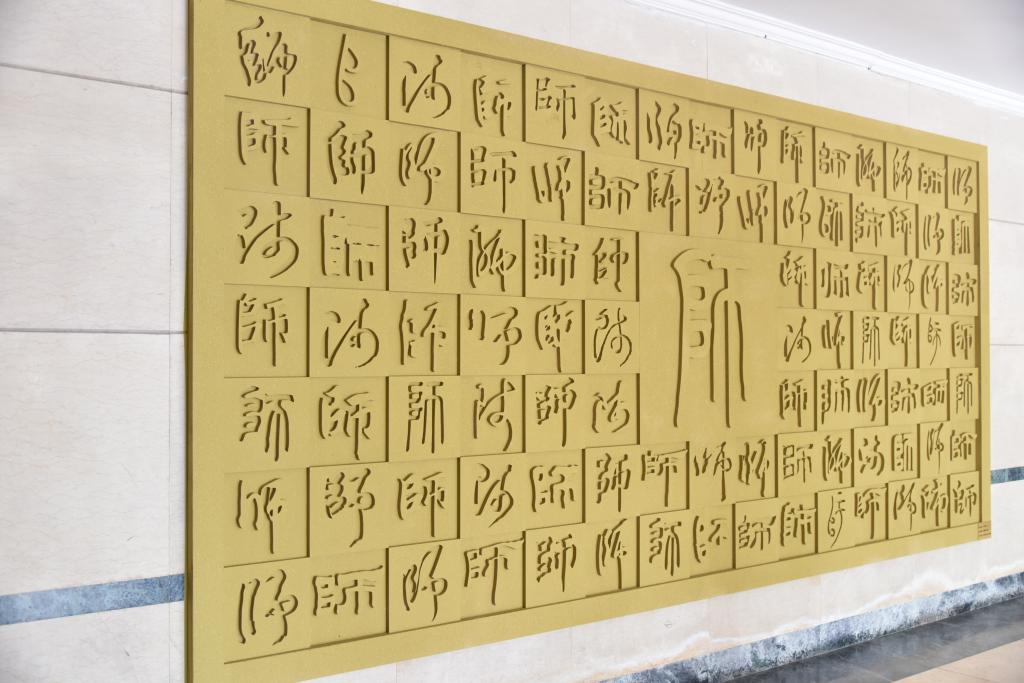 師師師師師師師師師師師師師師師
師師師師師師師師師師師師師師師
師師師師師師 師師師師師師
師師師師師師 師 師師師師師師
師師師師師師 師師師師師師
師師師師師師師師師師師師師師師
師師師師師師師師師師師師師師師